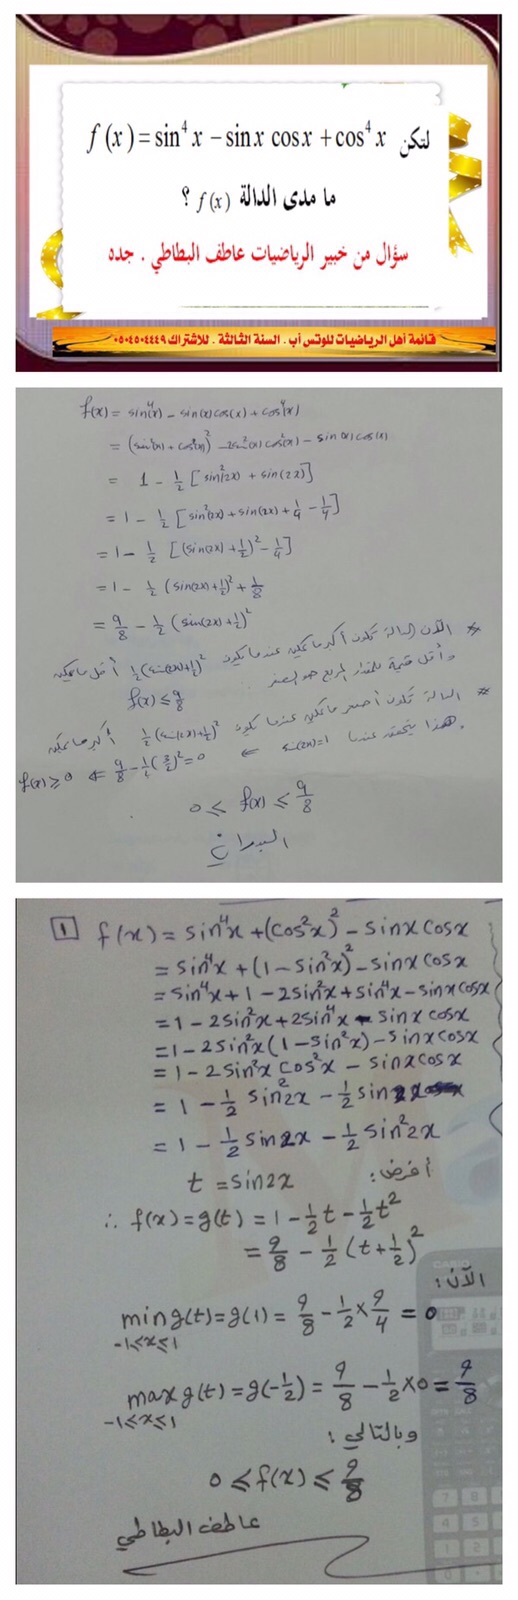 لتكن f(x) = sin⁴ x − sin x cos x + cos⁴ x
ما مدى الدالة f(x) ؟
سؤال من خبير الرياضيات عاطف البطاطي . جده
قائمة أهل الرياضيات للوتس آب . السنة الثالثة . للاشتراك ٠٥٠٤٥٠٤٤٤٩
f(x) = sin⁴(x) − sin(x)cos(x) + cos⁴(x)
= (sin²(x) + cos²(x))² − 2sin²(x)cos²(x) − sin(x)cos(x)
= 1 − 1/2 [sin²(2x) + sin(2x)]
= 1 − 1/2 [sin²(2x) + sin(2x) + 1/4 − 1/4]
= 1 − 1/2 [(sin(2x) + 1/2)² − 1/4]
= 1 − 1/2 (sin(2x) + 1/2)² + 1/8
= 9/8 − 1/2 (sin(2x) + 1/2)²
* الآن الدالة تكون أكبر ما يمكن عندما يكون 1/2 (sin(2x) + 1/2)² أقل ما يمكن
وأقل قيمة للمقدار المربع هو الصفر
f(x) ≤ 9/8
* الدالة تكون أصغر ما يمكن عندما يكون 1/2 (sin(2x) + 1/2)² أكبر ما يمكن
وهذا يتحقق عندما sin(2x) = 1 ⇐ 9/8 − 1/2 (3/2)² = 0 ⇐ f(x) ≥ 0
0 ≤ f(x) ≤ 9/8
1 f(x) = sin⁴x + (cos²x)² − sinx cosx
= sin⁴x + (1 − sin²x)² − sinx cosx
= sin⁴x + 1 − 2sin²x + sin⁴x − sinx cosx
= 1 − 2sin²x + 2sin⁴x − sinx cosx
= 1 − 2sin²x (1 − sin²x) − sinx cosx
= 1 − 2sin²x cos²x − sinx cosx
= 1 − 1/2 sin²2x − 1/2 sin2x
= 1 − 1/2 sin2x − 1/2 sin²2x
أفرض: t = sin2x
∴ f(x) = g(t) = 1 − 1/2 t − 1/2 t²
= 9/8 − 1/2 (t + 1/2)²
الآن:
min g(t) = g(1) = 9/8 − 1/2 × 9/4 = 0
−1≤x≤1
max g(t) = g(−1/2) = 9/8 − 1/2 × 0 = 9/8
−1≤x≤1
وبالتالي:
0 ≤ f(x) ≤ 9/8
عاطف البطاطي